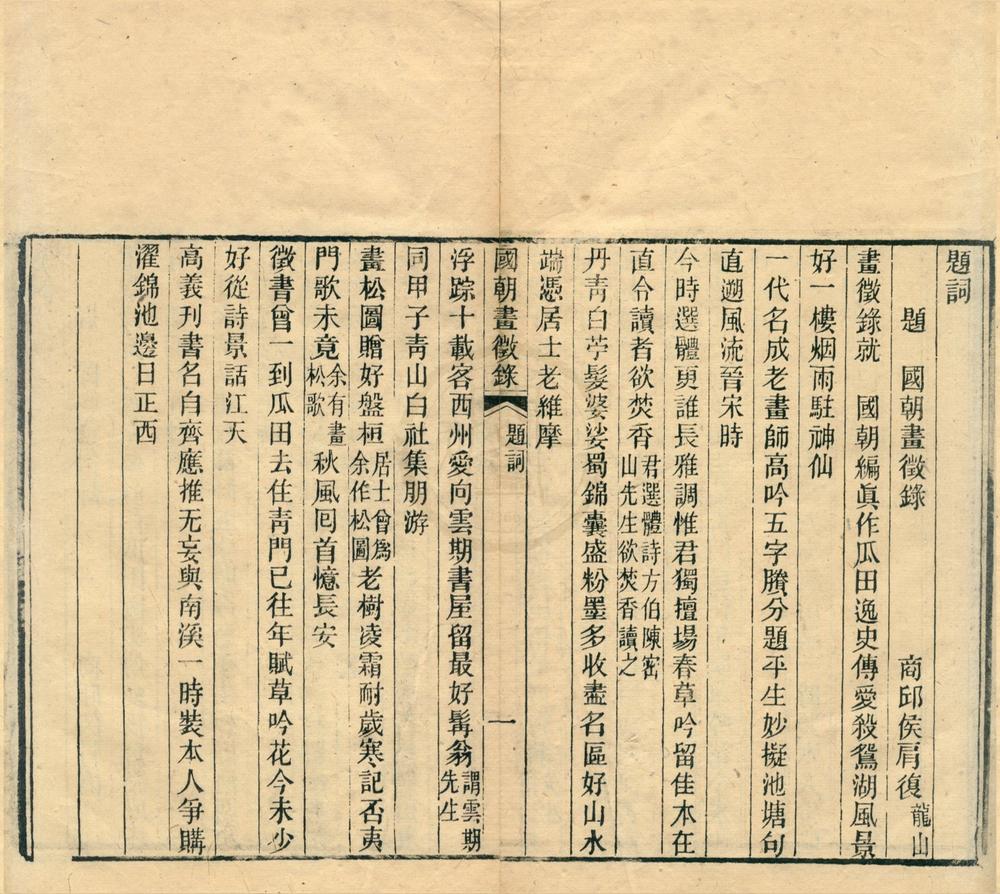 題詞
題　國朝畫徵錄　商邱侯肩復龍山
畫徵錄就　國朝編眞作瓜田逸史傳愛殺鴛湖風景
好一樓烟雨駐神仙
一代名成老畫師高吟五字賸分題平生妙擬池塘句
直遡風流晉宋時
今時選體更誰長雅調惟君獨擅場春草吟留佳本在
直令讀者欲焚香君選體詩方伯陳密山先生欲焚香讀之
丹靑白苧髮婆娑蜀錦囊盛粉墨多收盡名區好山水
端憑居士老維摩
國朝畫徵錄　題詞　一
浮踪十載客西州愛向雲期書屋留最好髯翁謂雲期先生
同甲子靑山白社集朋游
畫松圖贈好盤桓居士曾爲余作松圖老樹凌霜耐歲寒記否夷
門歌未竟余有畫松歌秋風囘首憶長安
徵書曾一到瓜田去住靑門已往年賦草吟花今未少
好從詩景話江天
高義刋書名自齊應推无妄與南溪一時裝本人爭購
濯錦池邊日正西